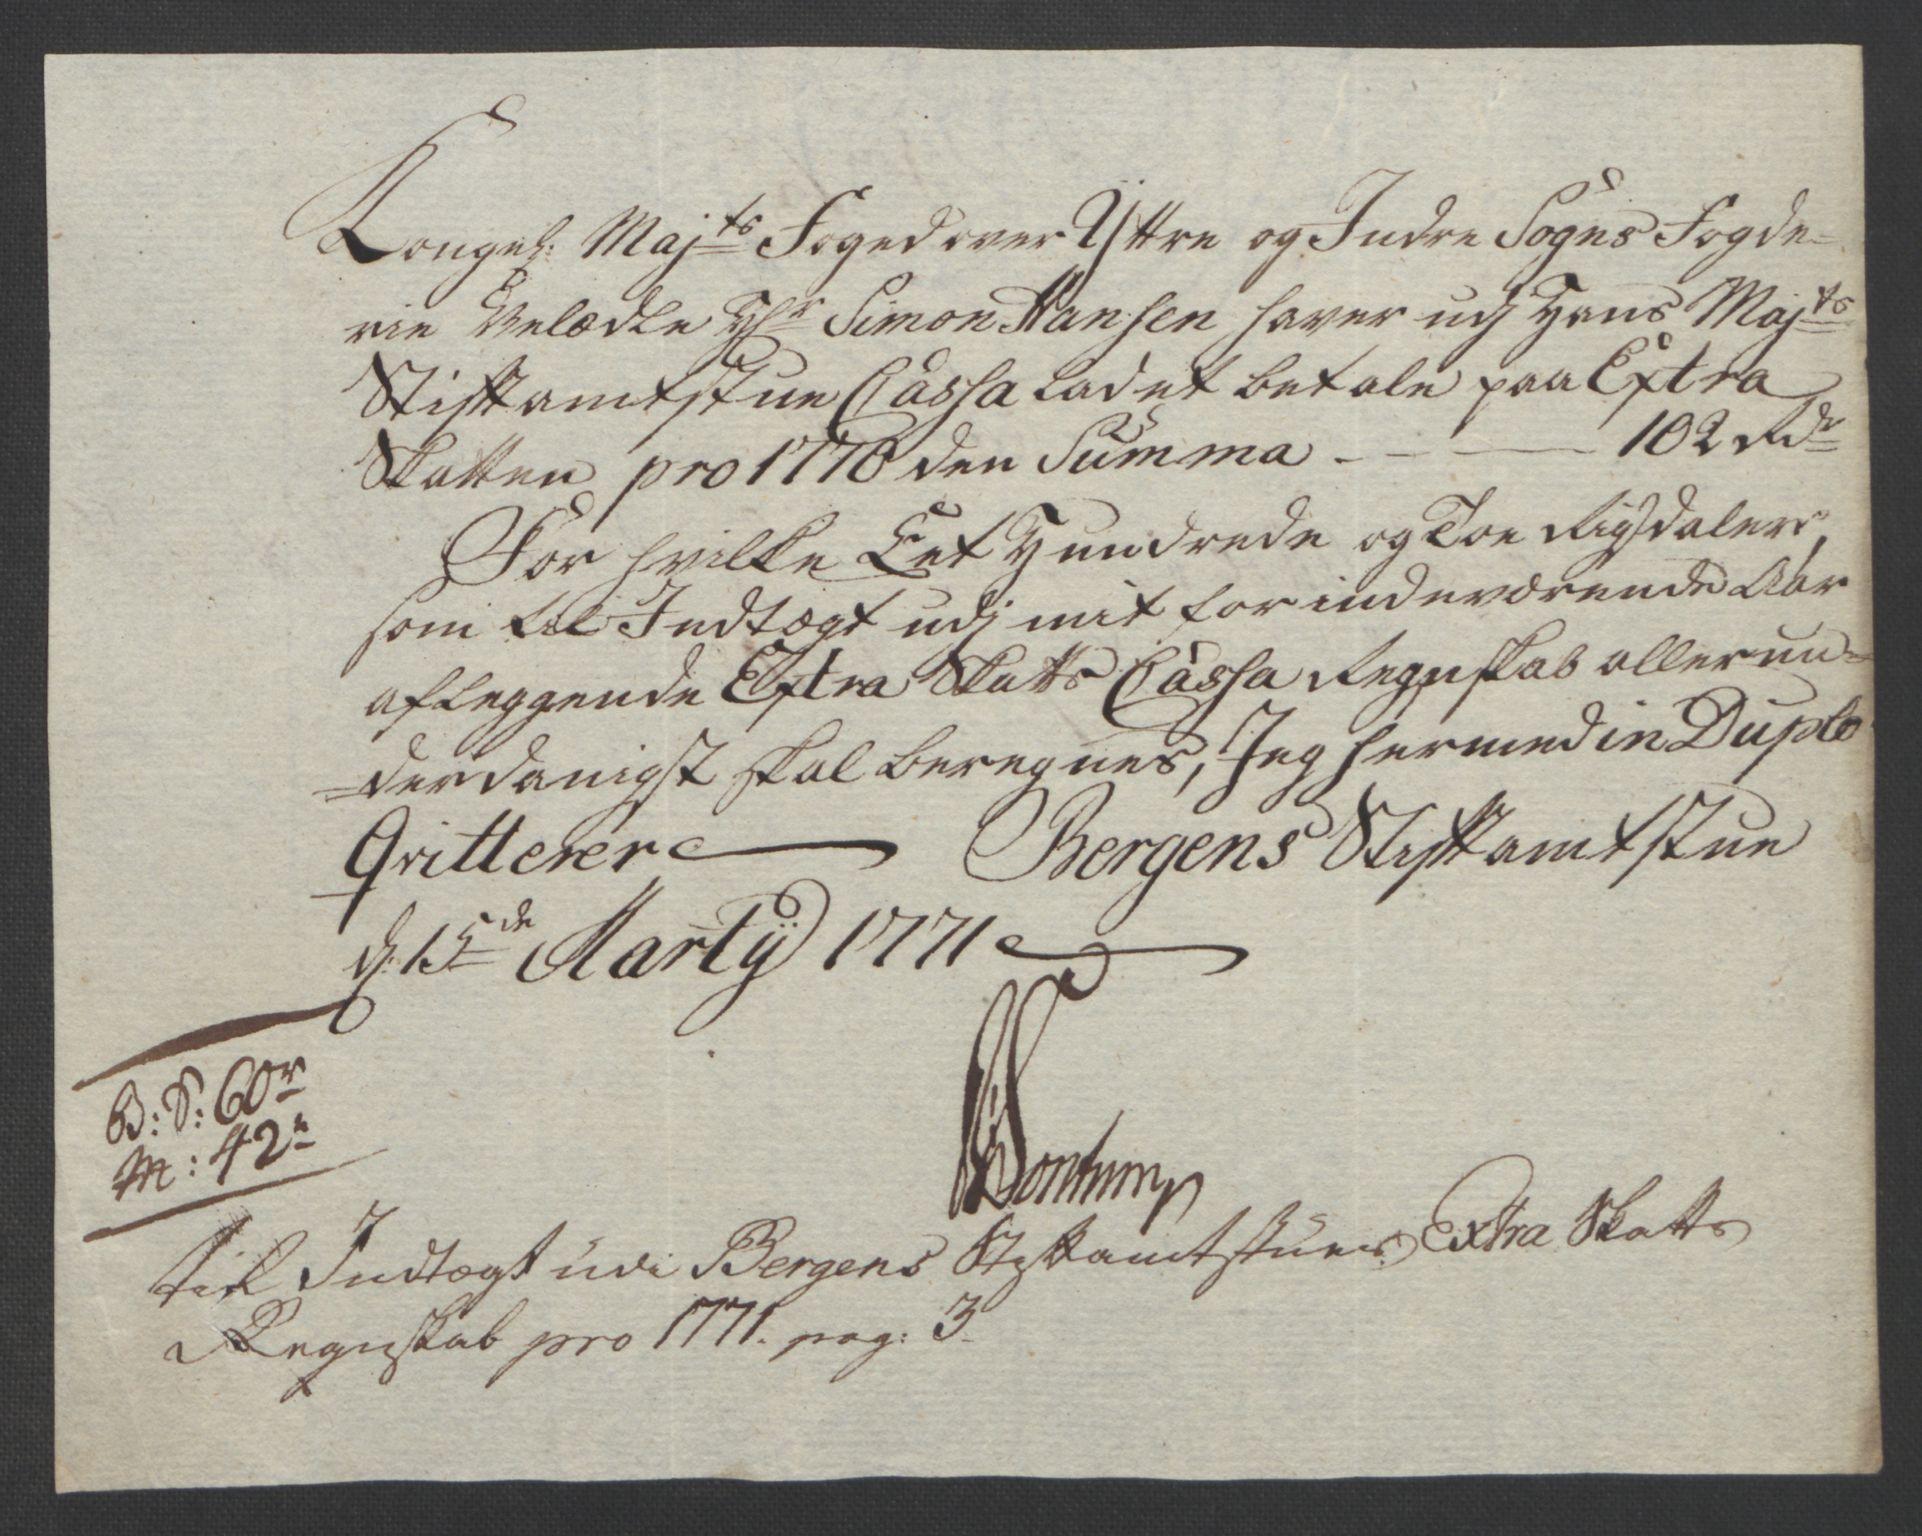 Kongel: Maj<sup>ts</sup> Foged over Ÿttre og Indre Sogns Fogde-
rie Velædle Hr Simon Hansen haver udj Hans Maj<sup>ts</sup>
Stiftamtstue Cassa ladet betale paa Extra
Skatten pro 1770 den Summa - - - 102 Rdr
For hvilke Eet Hundrede og Toe Rigsdaler,
som til Indtægt udj mit for indeværende Aar
aflæggende Extra Skatts Cassa Regnskab allerun-
derdanigst skal beregnes, Jeg hermed in Duplo
Qvitterer Bergens Stiftamtstue
d: 15de Martÿ 1771
B: S: 60r
M: 42r
Til Indtægt udi Bergens Stiftamtstues Extra Skatts
Regnskab pro 1771. pag: 3